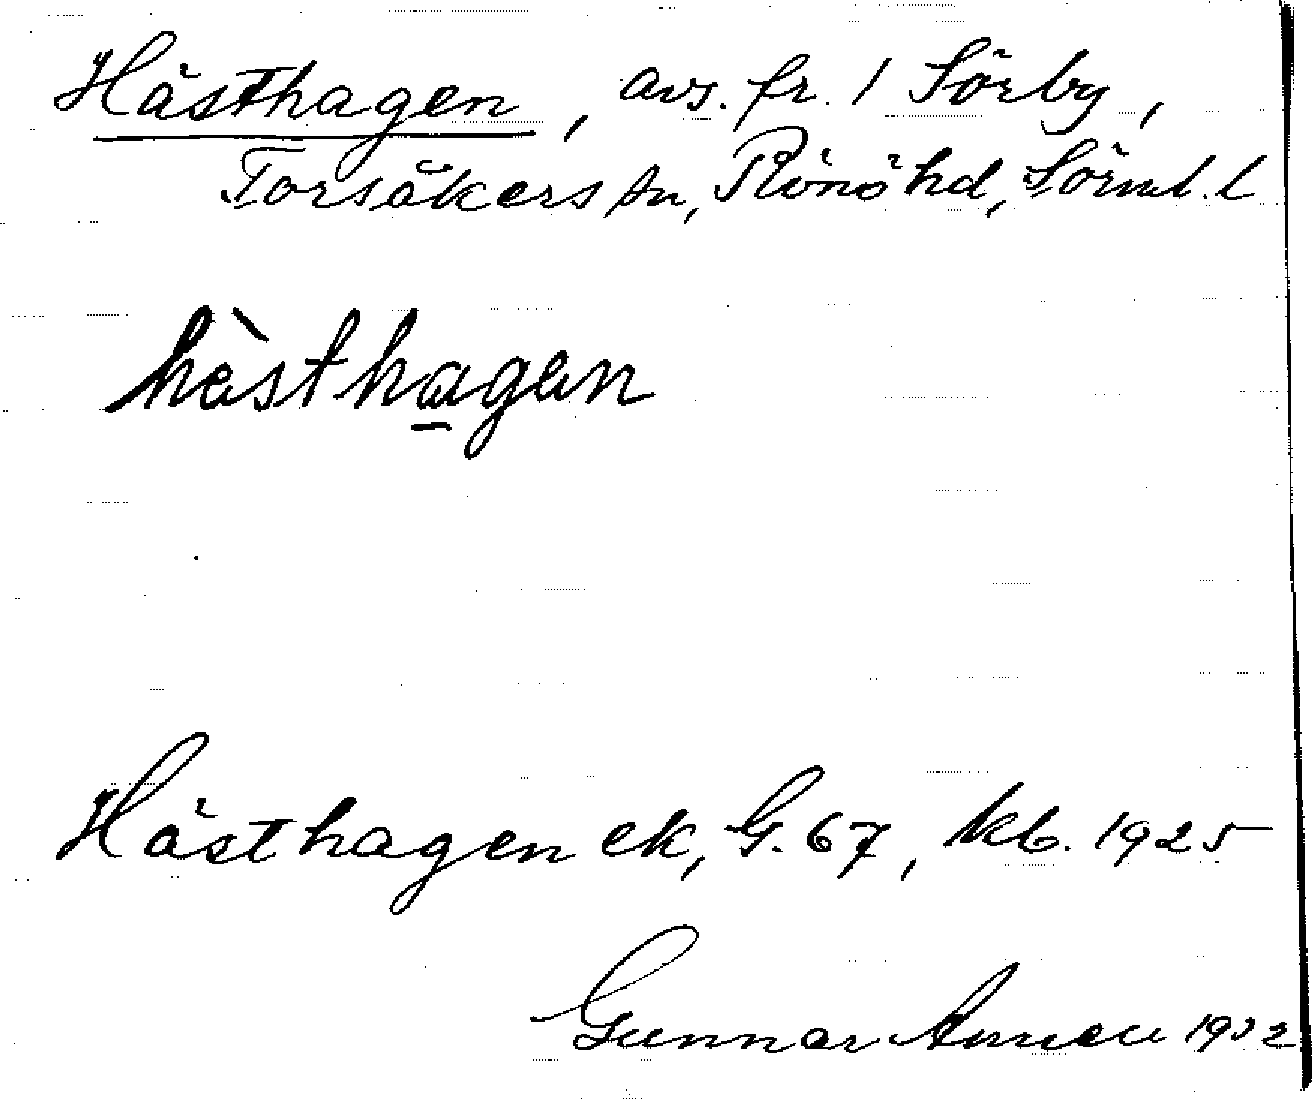 Hästhagen, avs. fr. 1 Sörby,
Torsåkers sn, Rönö hd, Sörml. l
hàsthagen
Hästhagen ek, G. 67, kb. 1925
Gunnar 1932